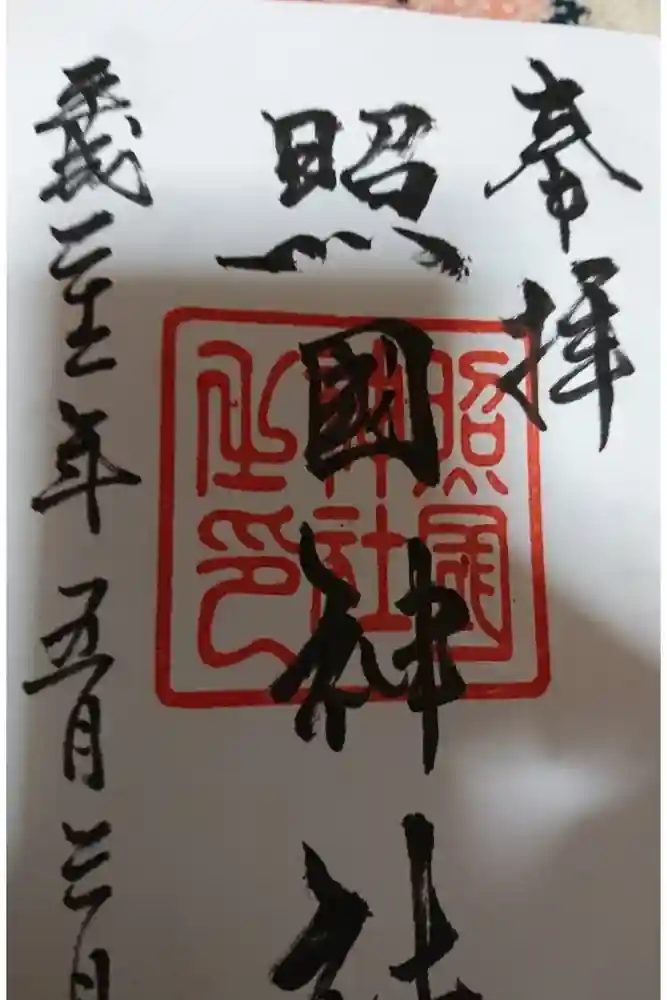 奉拝
照國神社
照國
神社
之印
平成
年五月三日